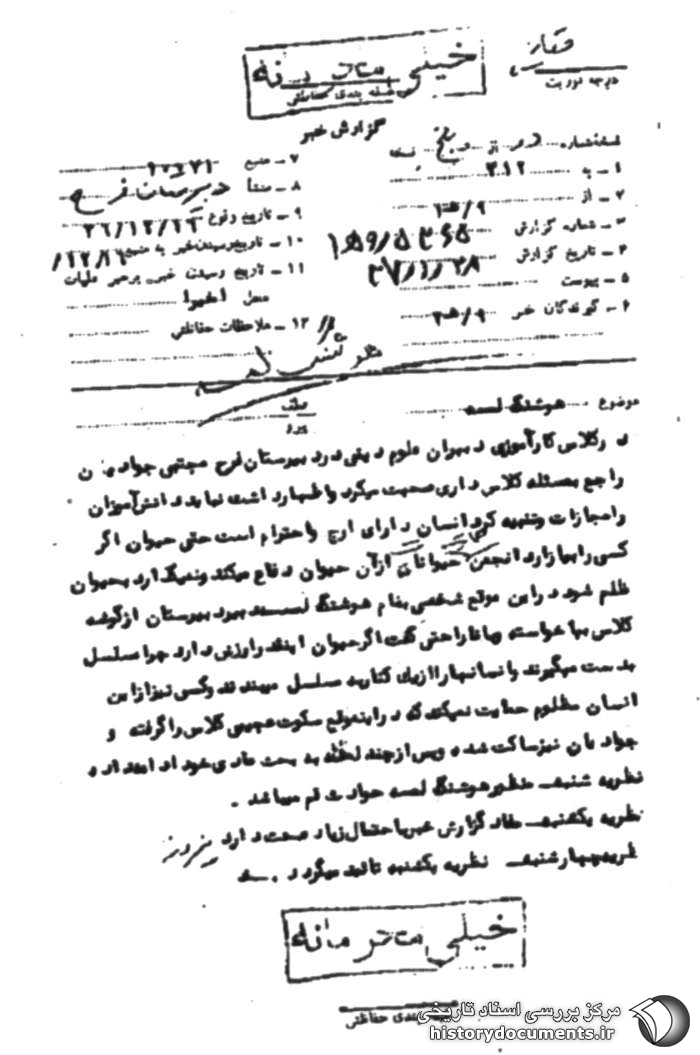 خیلی محرمانه
طبقه بندی حفاظتی
درجه فوریت
گزارش خبر
نسخه شماره از نسخه
۱ - به ۳۱۲
۲ - از ۹/ه۳
۳ - شماره گزارش
۴ - تاریخ گزارش ۳۷/۱/۲۸
۵ - پیوست
۶ - گیرندگان خبر ۹/ه۳
۷ - منبع ۱۰۶۷۱
۸ - منشأ دبیرستان فرح
۹ - تاریخ وقوع
۱۰ - تاریخ رسیدن خبر به منبع
۱۱ - تاریخ رسیدن خبر برهبر عملیات
محل اخبرا
۱۲ - ملاحظات حفاظتی
هوشنگ لمسه
موضوع هوشنگ لمسه
عطف
پیرو
در کلاس کارآموزی دبیران علوم دینی در دبیرستان فرح مجتبی جوادیان
راجع بمسئله کلاس داری صحبت میکرد و اظهار داشت نباید دانش آموزان
را مجازات و تنبیه کرد انسان دارای ارج و احترام است حتی حیوان اگر
کسی را بیازارد انجمن حیوانات از آن حیوان دفاع میکند و نمیگذارد بحیوان
ظلم شود در این موقع شخصی بنام هوشنگ لمسه دبیر دبیرستان از گوشه
کلاس بپا خواسته و با ناراحتی گفت اگر حیوان اینقدر ارزش دارد چرا مسلسل
بدست میگیرند و انسانها را از یک کنار به مسلسل میبندند و کسی نیز از این
انسان مظلوم حمایت نمیکند که در اینموقع سکوت عجیبی کلاس را گرفته و
جوادیان نیز ساکت شده و پس از چند لحظه به بحث عادی خود ادامه داد و
نظریه شنبه منظور هوشنگ لمسه حوادث قم میباشد .
نظریه یکشنبه مفاد گزارش خبر با احتمال زیاد صحت دارد
نظریه چهارشنبه نظریه یکشنبه تائید میگردد .
خیلی محرمانه
بندی حفاظتی
مرکز بررسی اسناد تاریخی
historydocuments.ir